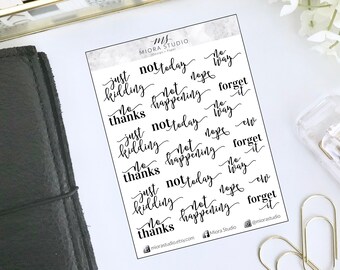 ms
MIORA STUDIO
just kidding
not today
no way
nope
not happening
forget it
no thanks
not today
no way
just kidding
nope
forget it
no thanks
not happening
ew
just kidding
not today
no way
nope
ew
no thanks
not happening
forget it
miorastudio.etsy.com
Miora Studio
@miorastudio